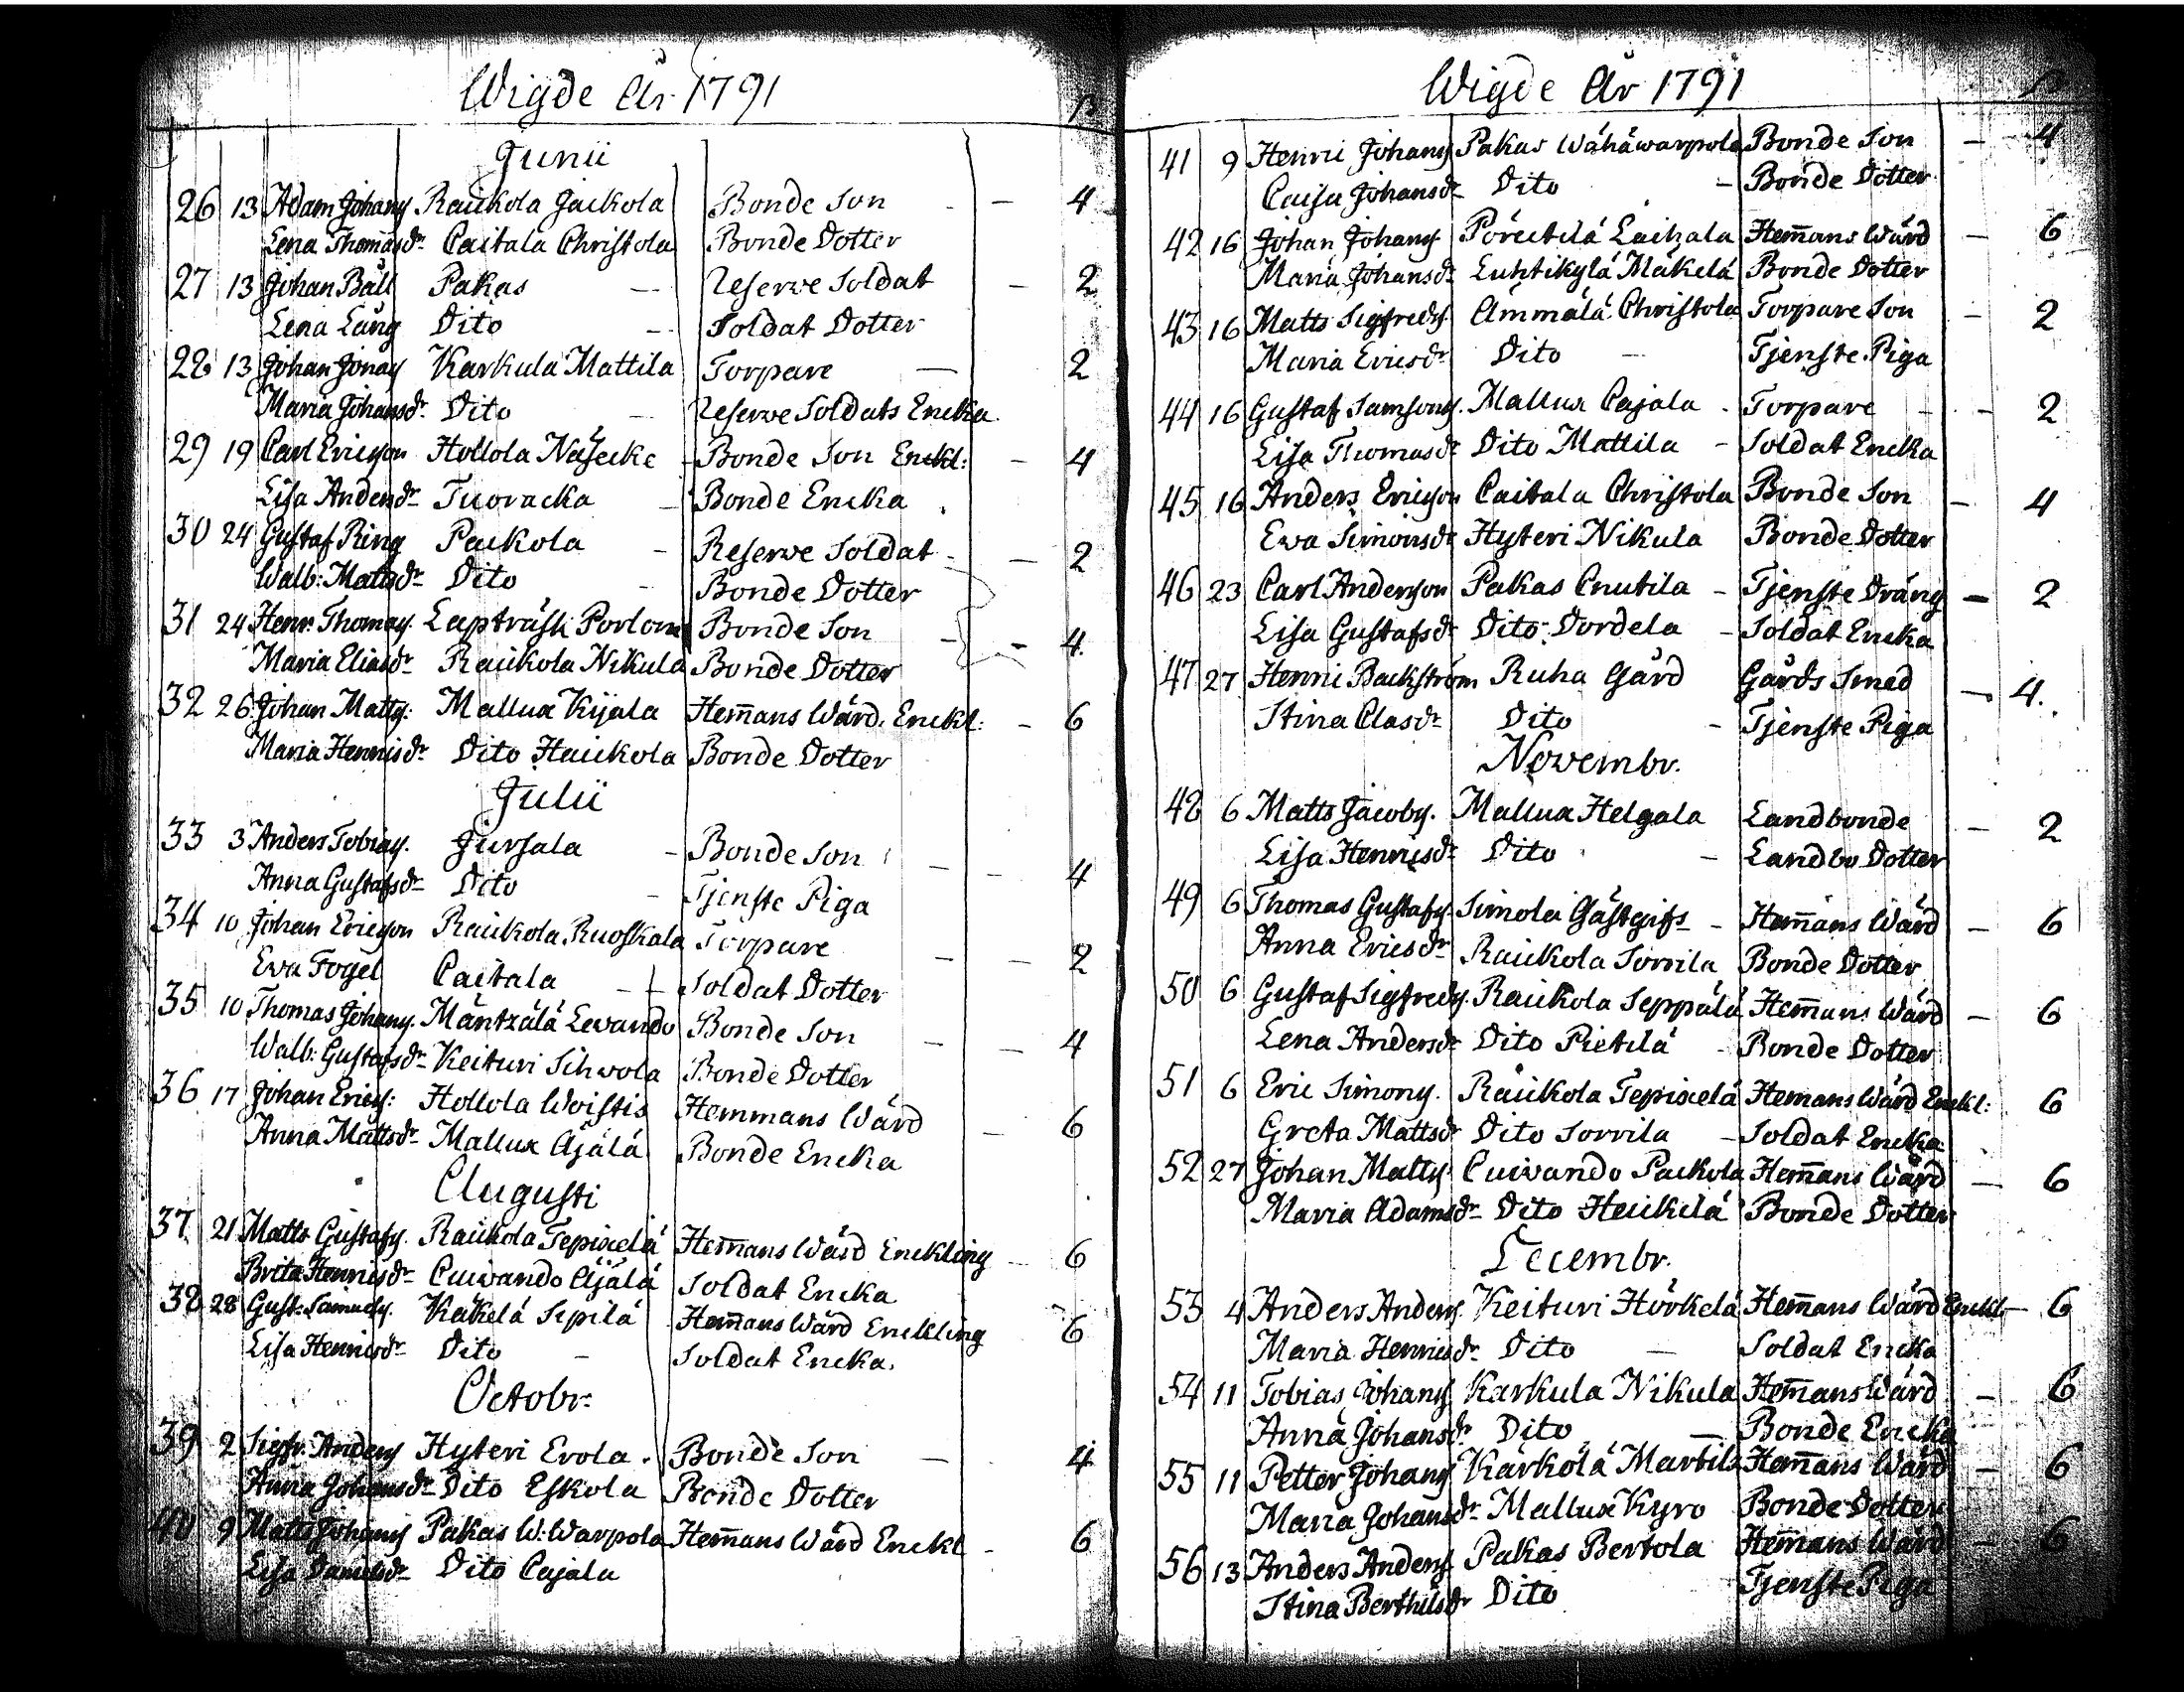 Wigde År 1791
ß
Junii
26 13 Adam Johans Raukola Jackola Bonde Son - 4
Lena Thomasdr Caitala Christola Bonde Dotter
27 13 Johan Båll Pakas - Reserve Soldat - 2
Lena Lång Dito - Soldat Dotter
28 13 Johan Jonas Karkula Mattila Torpare - 2
Maria Johansdr Dito - Reserve Soldats Encka
29 19 Carl Ericson Hollola Näsecke - Bonde Son Enckl: - 4
Lisa Andersdr Tuoracka - Bonde Encka
30 24 Gustaf Ring Packola - Reserve Soldat - 2
Walb: Mattsdr Dito - Bonde Dotter
31 24 Henr. Thomas. Lapträsk Porlom Bonde Son - 4.
Maria Eliasdr Raukola Nikula Bonde Dotter
32 26 Johan Matts: Mallux Kijala Hemans Wärd. Enckl: - 6
Maria Henricsdr Dito Hauckola Bonde Dotter
Julii
33 3 Anders Tobias. Jursala - Bonde Son - 4
Anna Gustafsdr Dito - Tjenste Piga
34 10 Johan Ericson Raukola Ruoskala Torpare - 2
Eva Fogel Caitala - Soldat Dotter
35 10 Thomas Johans. Mäntzälä Levando Bonde Son - 4
Walb: Gustafsdr Keituri Sihvola Bonde Dotter
36 17 Johan Erics: Hollola Woistis Hemmans Wärd - 6
Anna Mattsdr Mallux Äjälä Bonde Encka
Augusti
37. 21 Matts Gustafs. Raukola Tepixelä Hemans Wärd Enckling - 6
Brita Henricsdr Cuivando Äjälä Soldat Encka
38 28 Gust. Samuels. Käkelä Sepilä Hemans Wärd Enckling 6
Lisa Henricsdr Dito - Soldat Encka.
Octobr:
39 2 Sigfr. Anders Hyteri Erola. Bonde Son - 4
Anna Johansdr Dito Eskola Bonde Dotter
40 9 Matts Johans Pakas W: Warpola Hemans Wärd Enckl - 6
Lisa Danielsdr Dito Cajala
Wigde År 1791
ß
41 9 Henric Johans Pakas Wähäwarpola Bonde Son - 4
Caisa Johansdr Dito - Bonde Dotter
42 16 Johan Johans Pöreitilä Laihala Hemans Wärd - 6
Maria Johansdr Luhtikylä Mäkelä Bonde Dotter
43 16 Matts Sigfreds. Ämmälä Christola Torpare Son - 2
Maria Ericsdr Dito - Tjenste Piga
44 16 Gustaf Samsons. Mallux Cajala - Torpare - 2
Lisa Thomasdr Dito Mattila - Soldat Encka
45 16 Anders Ericson Caitala Christola Bonde Son - 4
Ewa Simonsdr Hyteri Nikula Bonde Dotter
46 23 Carl Anderson Pakas Cnutila - Tjenste Dräng - 2
Lisa Gustafsdr Dito Dordela - Soldat Encka
47 27 Henric Backström Ruha Gård Gårds Smed - 4.
Stina Clasdr Dito - Tjenste Piga
Novembr.
48 6 Matts Jacobs. Mallux Helgala Landbonde - 2
Lisa Henricsdr Dito - Landbo Dotter
49 6 Thomas Gustafs. Simola Gästgifs - Hemans Wärd - 6
Anna Ericsdr Raukola Sorvila Bonde Dotter
50 6 Gustaf Sigfreds. Raukola Seppälä Hemans Wärd - 6
Lena Andersdr Dito Pietilä - Bonde Dotter
51 6 Eric Simons. Raukola Tepixelä Hemans Wärd Enckl: 6
Greta Mattsdr Dito Sorvila - Soldat Encka
52 27 Johan Matts Cuivando Packola Hemans Wärd - 6
Maria Adamsdr Dito Heickilä Bonde Dotter
Decembr.
53 4 Anders Anders. Keituri Hörkelä Hemans Wärd Enckl - 6
Maria Henricsdr Dito - Soldat Encka
54 11 Tobias Johans Karkula Nikula Hemans Wärd - 6
Anna Johansdr Dito - Bonde Encka
55 11 Petter Johans Kärkölä Martila Hemans Wärd - 6
Maria Johansdr Mallux Kyro Bonde Dotter
56 13 Anders Anders. Pakas Bertola Hemans Wärd - 6
Stina Berthilsdr Dito Tjenste Piga